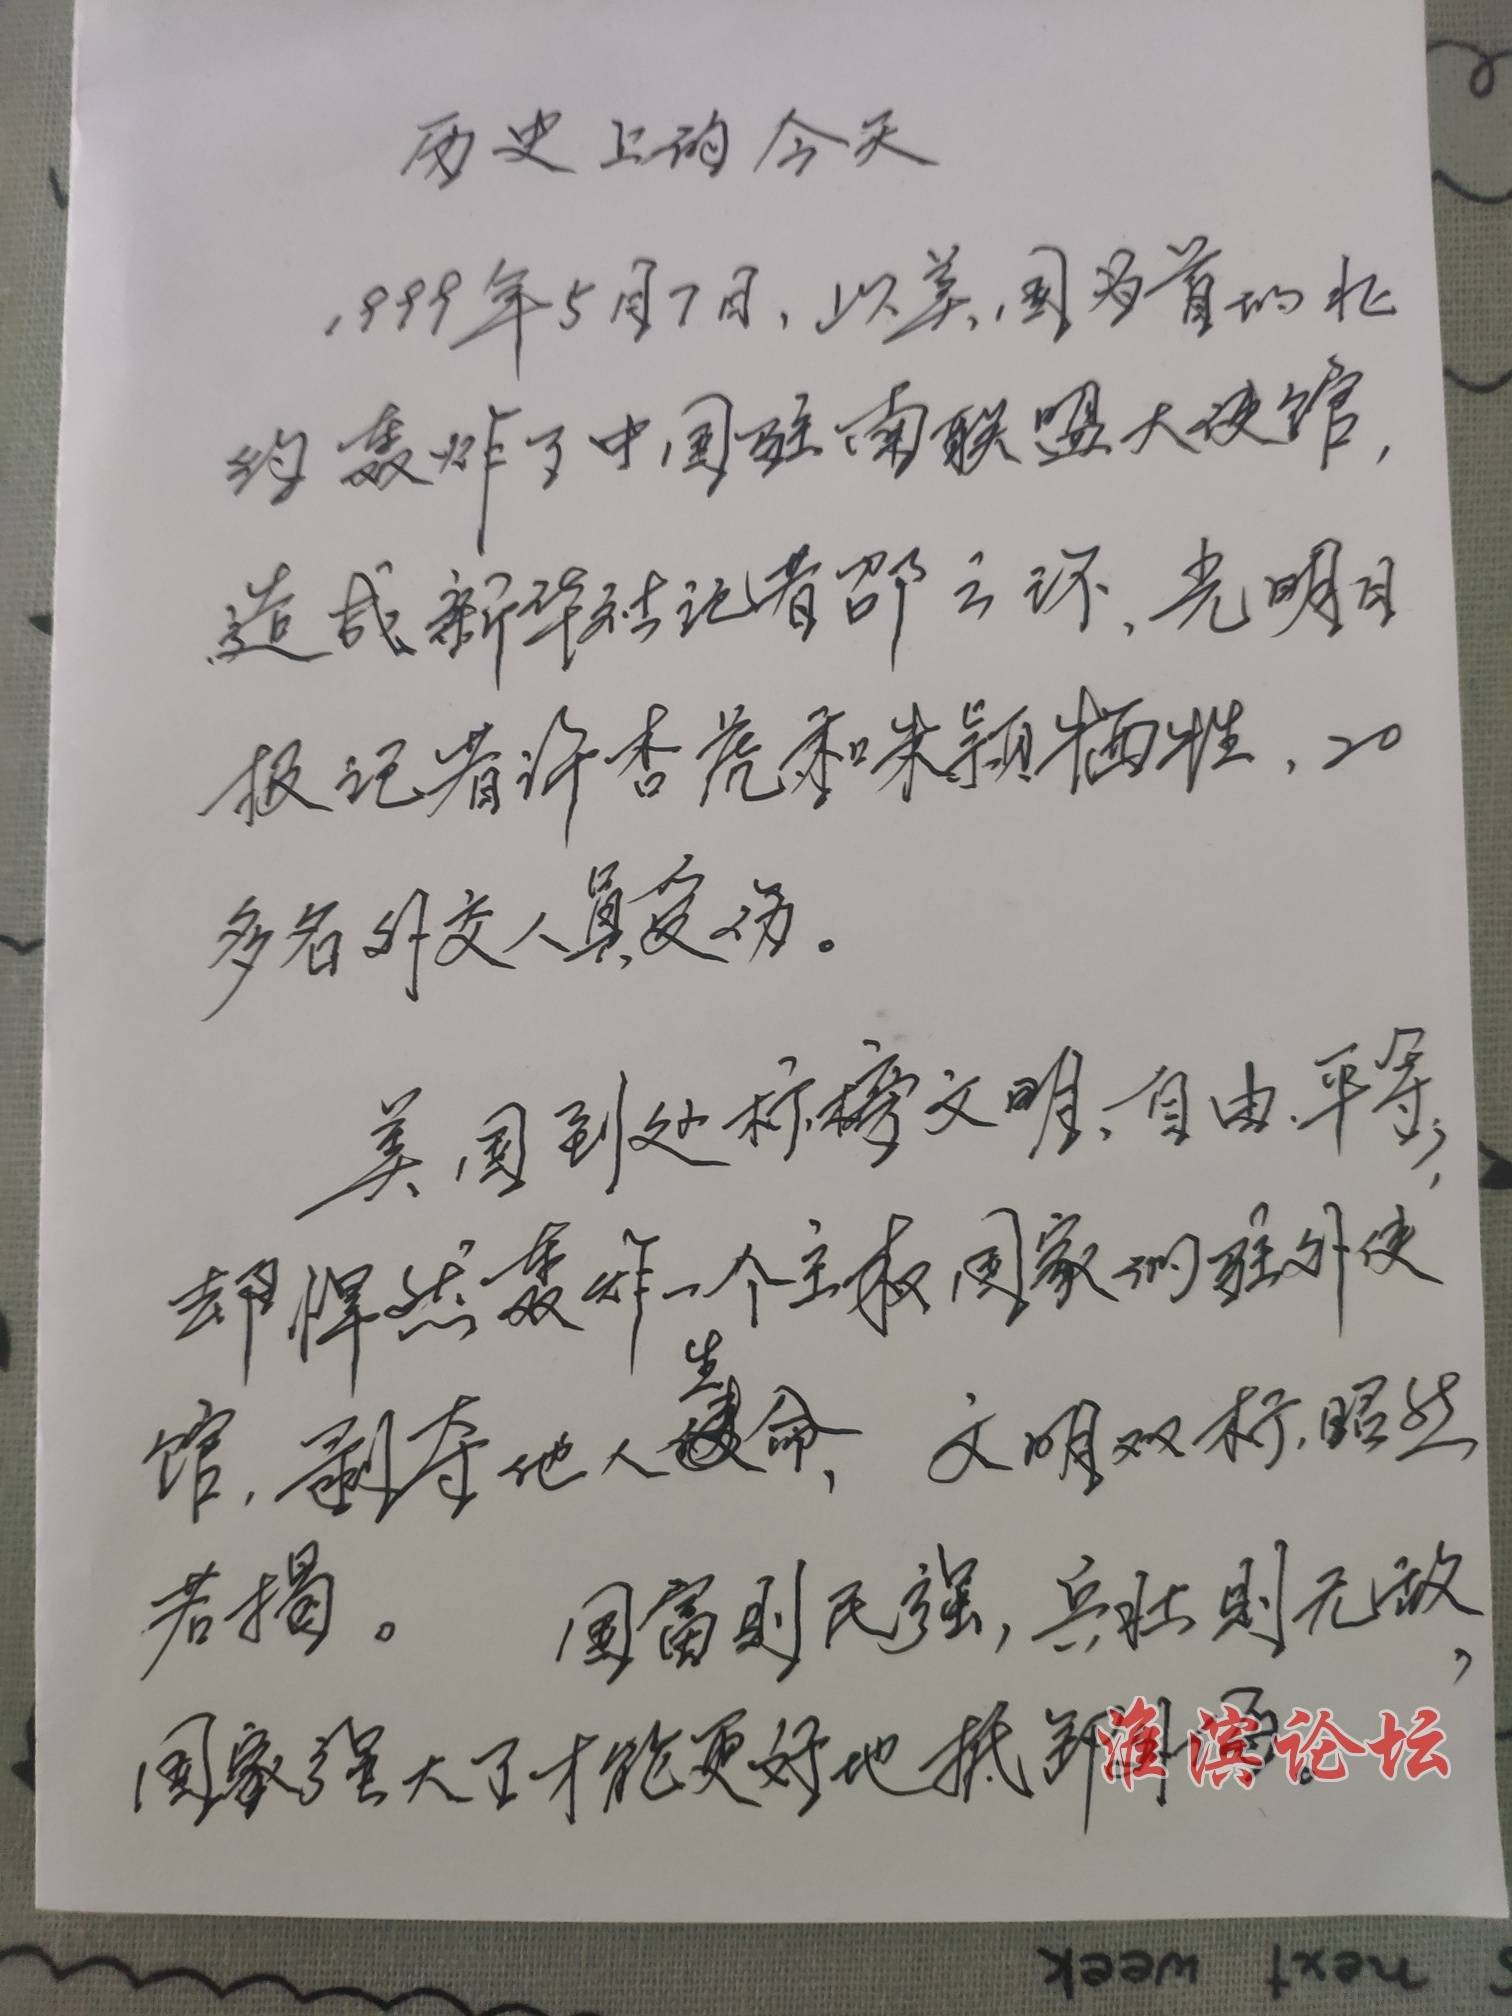 历史上的今天
1999年5月7日，以美国为首的北
约轰炸了中国驻南联盟大使馆，
造成新华社记者邵云环、光明日
报记者许杏虎和朱颖牺牲，20
多名外交人员受伤。
美国到处标榜文明、自由、平等，
却悍然轰炸一个主权国家的驻外使
馆，剥夺他人生命，文明双标，昭然
若揭。 国富则民强，兵壮则无敌，
国家强大了才能更好地抵御外
淮滨论坛
next week